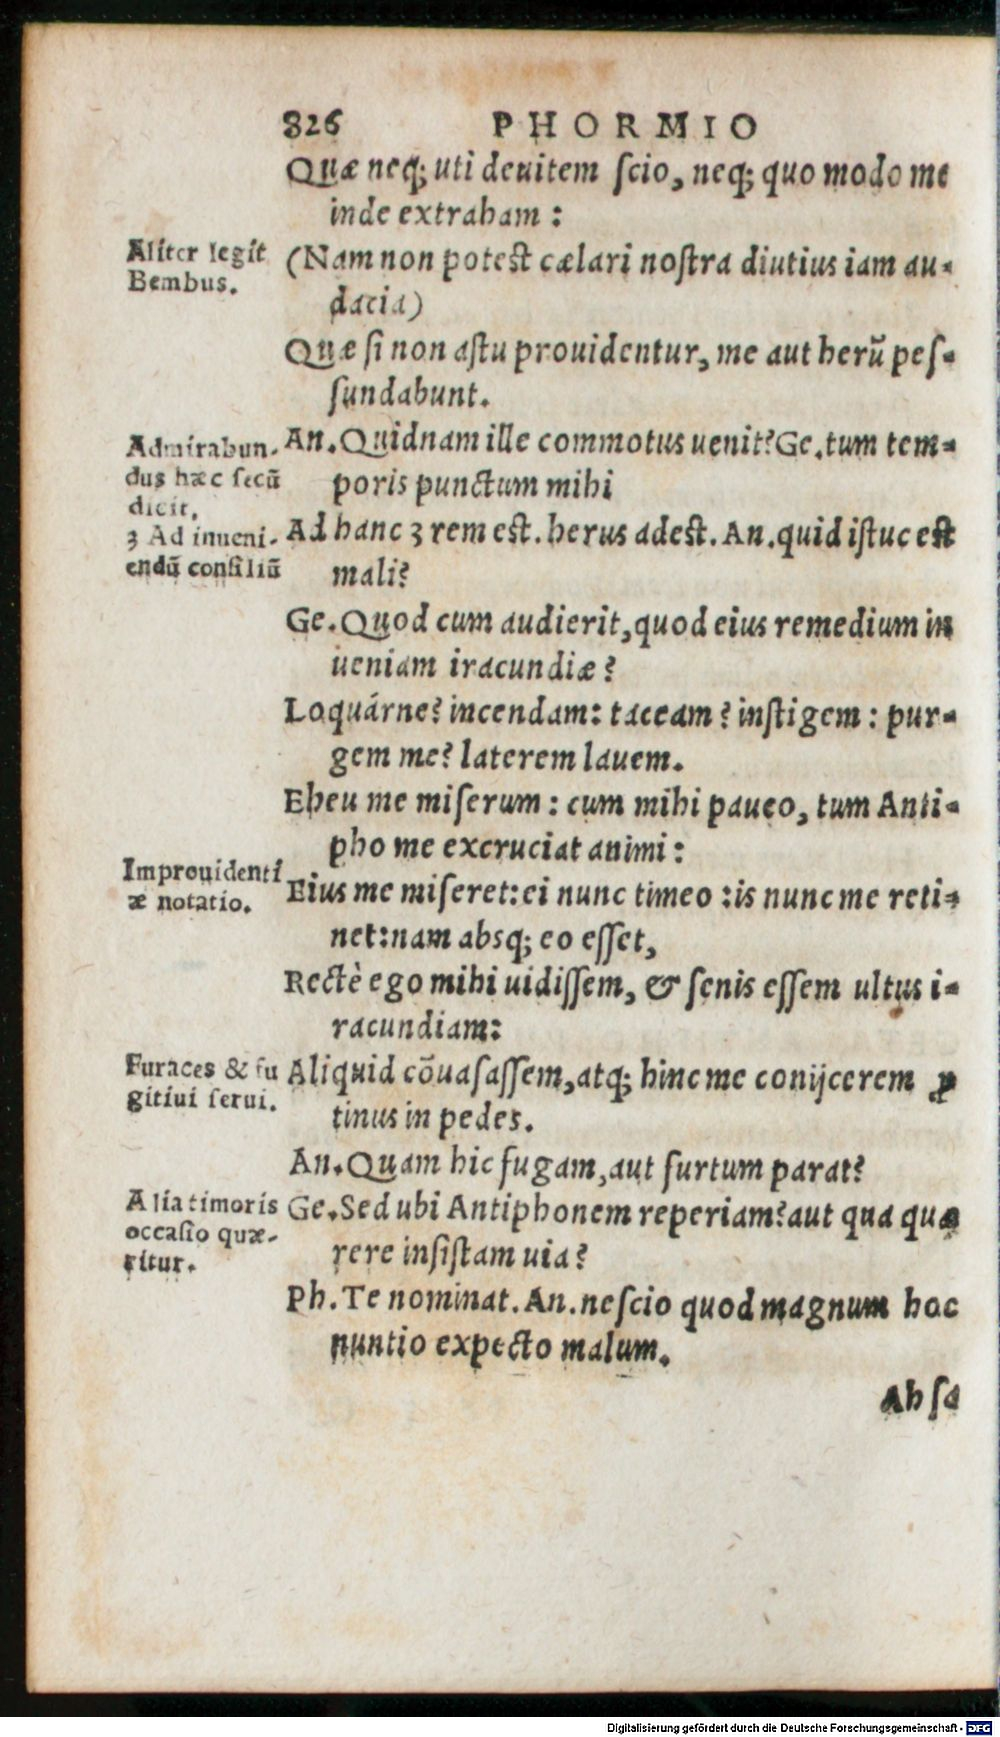 326 PHORMIO
Quæ neq; uti deuitem ſcio, neq; quo modo me
inde extraham :
Aliter legit
Bembus.
(Nam non poteſt cælari noſtra diutius iam au-
dacia)
Quæ ſi non aſtu prouidentur, me aut herũ peſ-
ſundabunt.
Admirabun-
dus hæc ſecũ
dicit.
An. Quidnam ille commotus uenit? Ge. tum tem-
poris punctum mihi
3 Ad inueni-
endũ conſiliũ
Ad hanc 3 rem eſt. herus adeſt. An. quid iſtuc eſt
mali?
Ge. Quod cum audierit, quod eius remedium in
ueniam iracundiæ?
Loquárne? incendam: taceam? inſtigem: pur-
gem me? laterem lauem.
Eheu me miſerum: cum mihi paueo, tum Anti-
pho me excruciat animi:
Improuidenti
æ notatio.
Eius me miſeret: ei nunc timeo: is nunc me reti-
net: nam absq; eo eſſet,
Rectè ego mihi uidiſſem, & ſenis eſſem ultus i-
racundiam:
Furaces & fu
gitiui ſerui.
Aliquid cõuaſaſſem, atq; hinc me conijcerem ꝓ
tinus in pedes.
An. Quam hic fugam, aut furtum parat?
Alia timoris
occaſio quæ-
ritur.
Ge. Sed ubi Antiphonem reperiam? aut qua quæ
rere inſiſtam uia?
Ph. Te nominat. An. neſcio quod magnum hoc
nuntio expecto malum.
Ah ſa
Digitalisierung gefördert durch die Deutsche Forschungsgemeinschaft - DFG